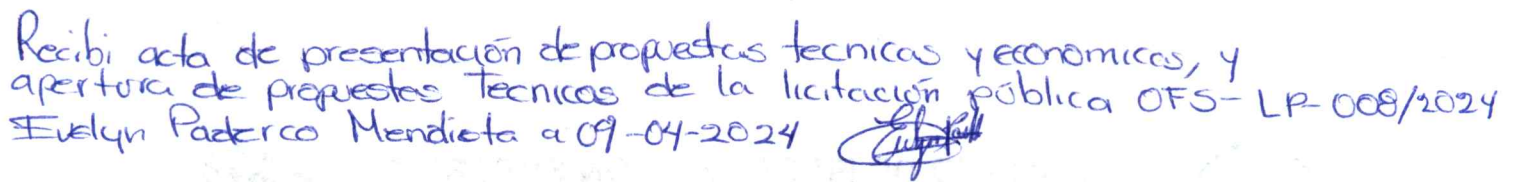 Recibi acta de presentación de propuestas tecnicas y economicas, y
apertura de propuestas Tecnicas de la licitación pública OFS-LP-008/2024
Evelyn Paderco Mendieta a 09-04-2024